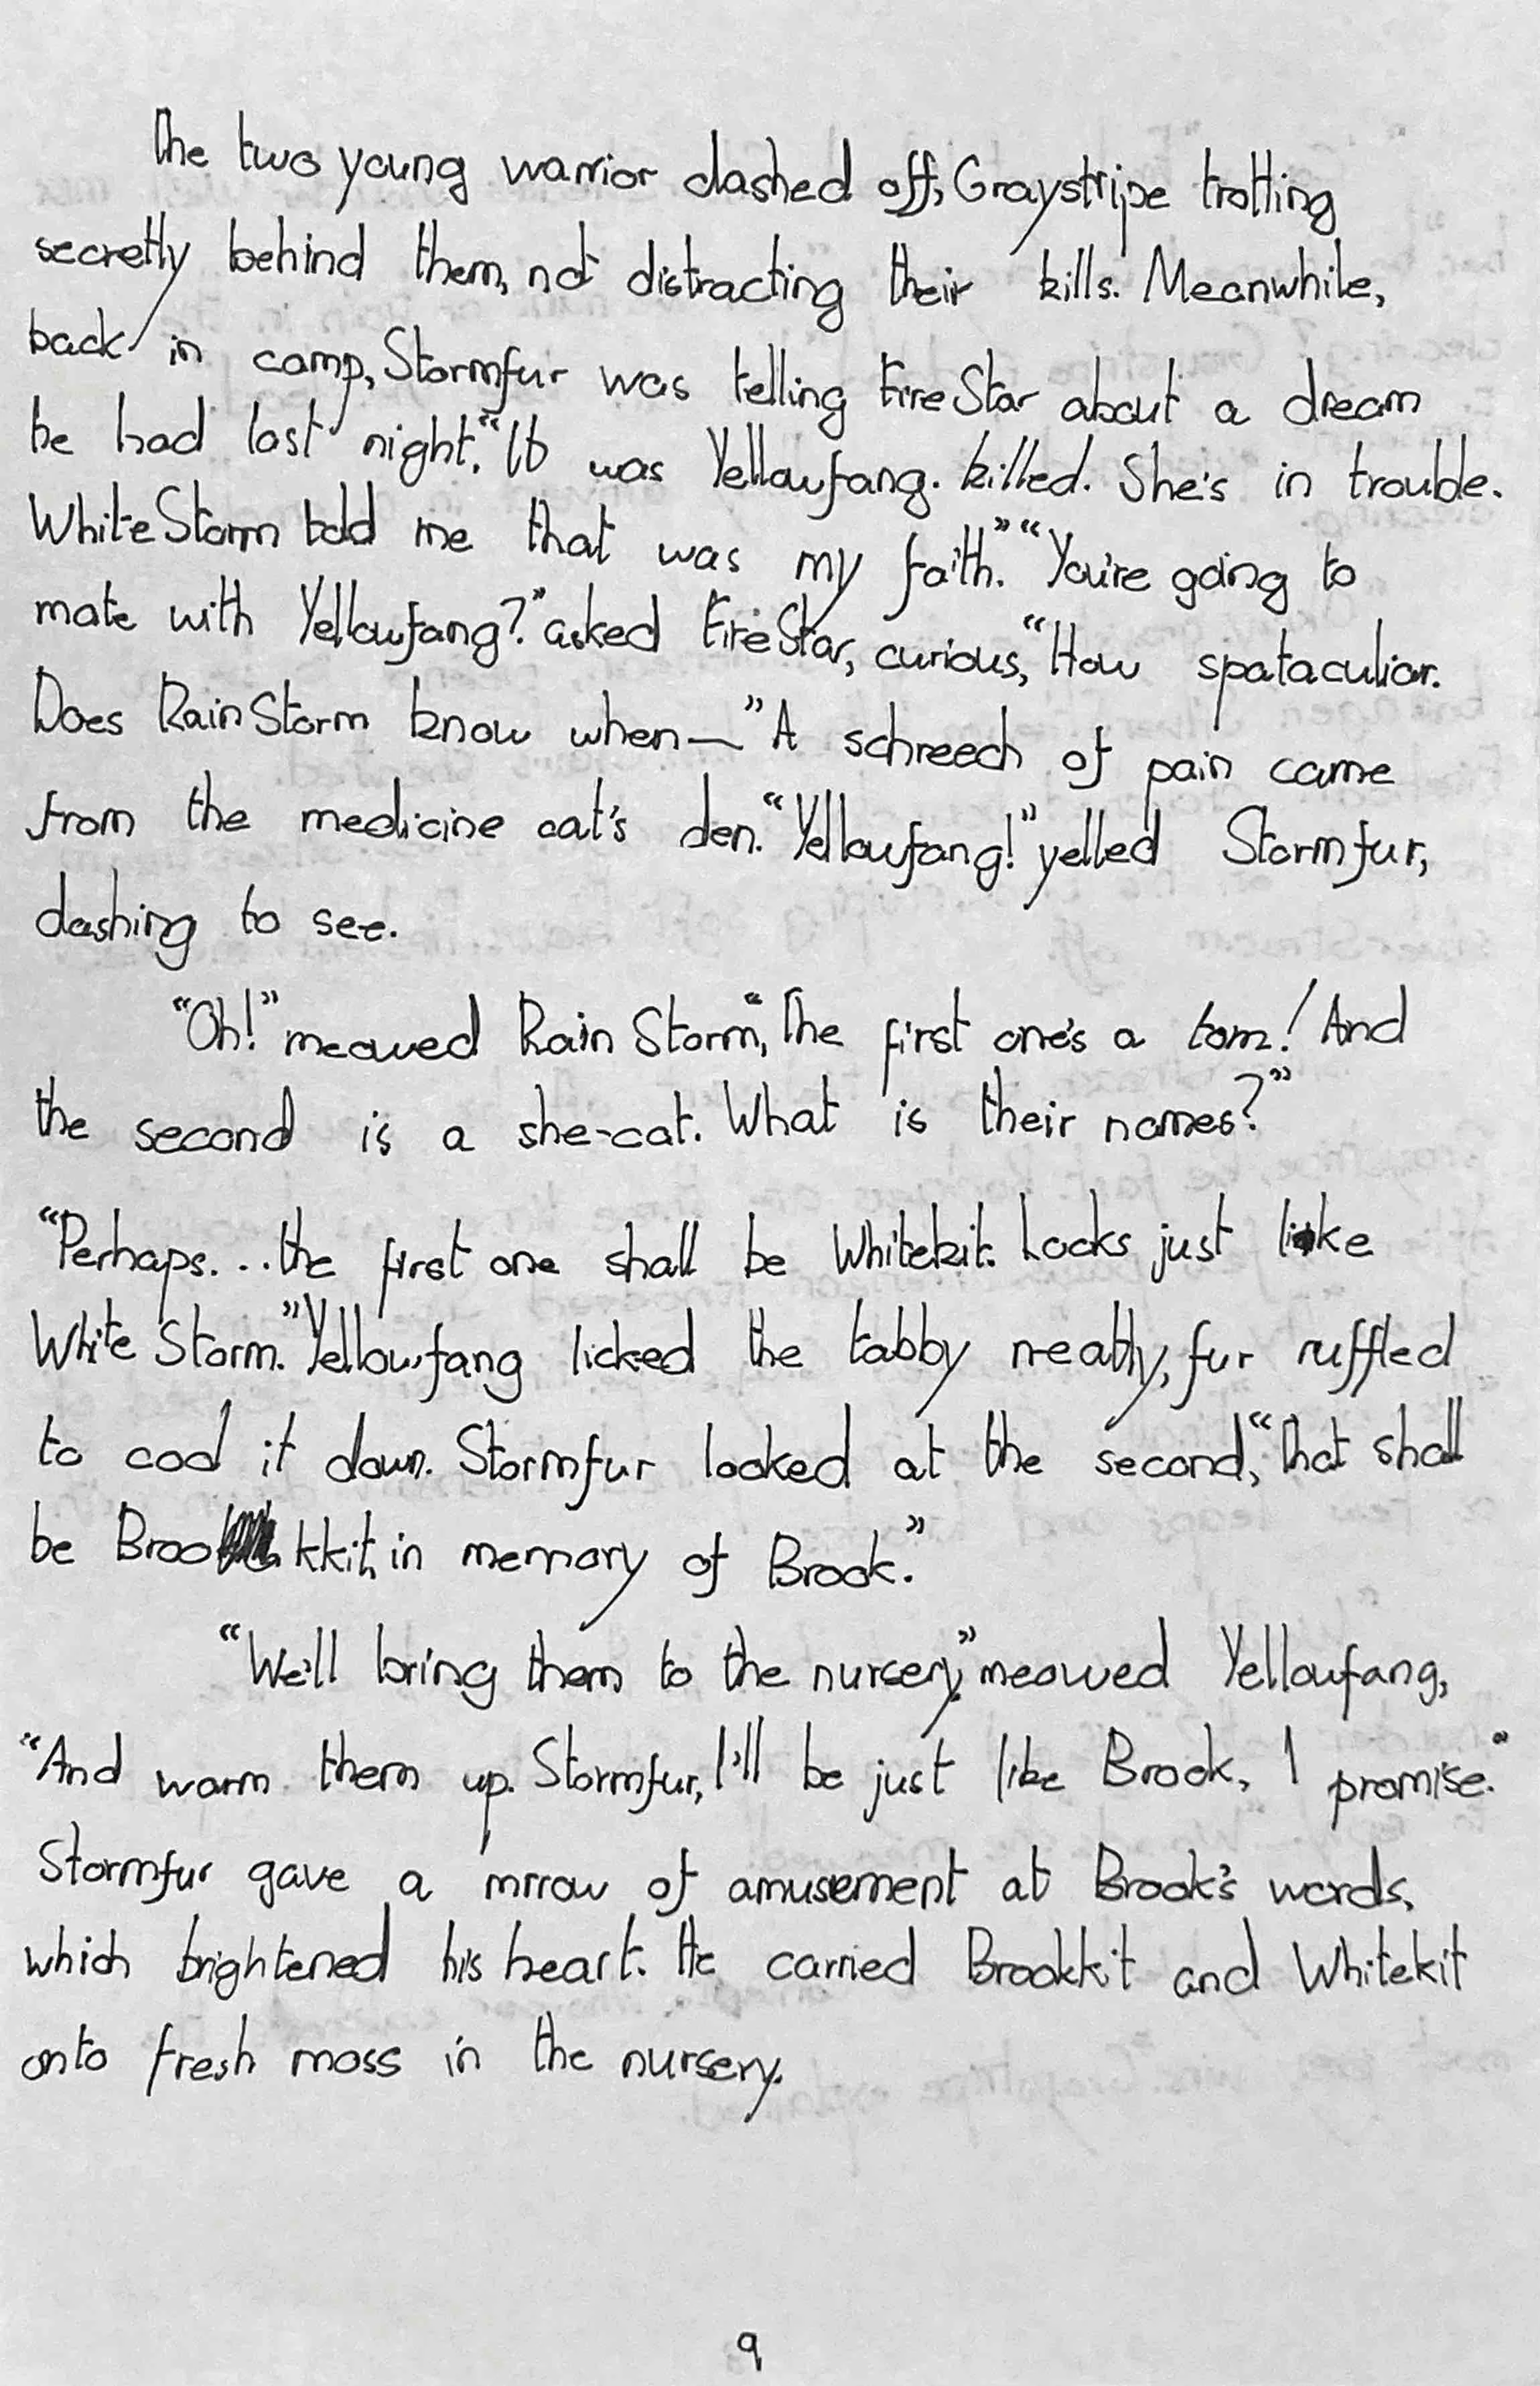 The two young warrior dashed off, Graystripe trotting
secretly behind them, not distracting their kills. Meanwhile,
back in camp, Stormfur was telling FireStar about a dream
he had last night. "It was Yellowfang. killed. She's in trouble.
WhiteStorm told me that was my faith." "You're going to
mate with Yellowfang?" asked FireStar, curious, "How spataculiar.
Does RainStorm know when—" A schreech of pain came
from the medicine cat's den. "Yellowfang!" yelled Stormfur,
dashing to see.
"Oh!" meowed RainStorm, "The first one's a tom! And
the second is a she-cat. What is their names?"
"Perhaps...the first one shall be Whitekit. Looks just like
WhiteStorm." Yellowfang licked the tabby neatly, fur ruffled
to cool it down. Stormfur looked at the second, "That shall
be Brookkit, in memory of Brook."
"We'll bring them to the nursery," meowed Yellowfang,
"And warm them up. Stormfur, I'll be just like Brook, I promise."
Stormfur gave a mrrow of amusement at Brook's words,
which brightened his heart. He carried Brookkit and Whitekit
onto fresh moss in the nursery.
9